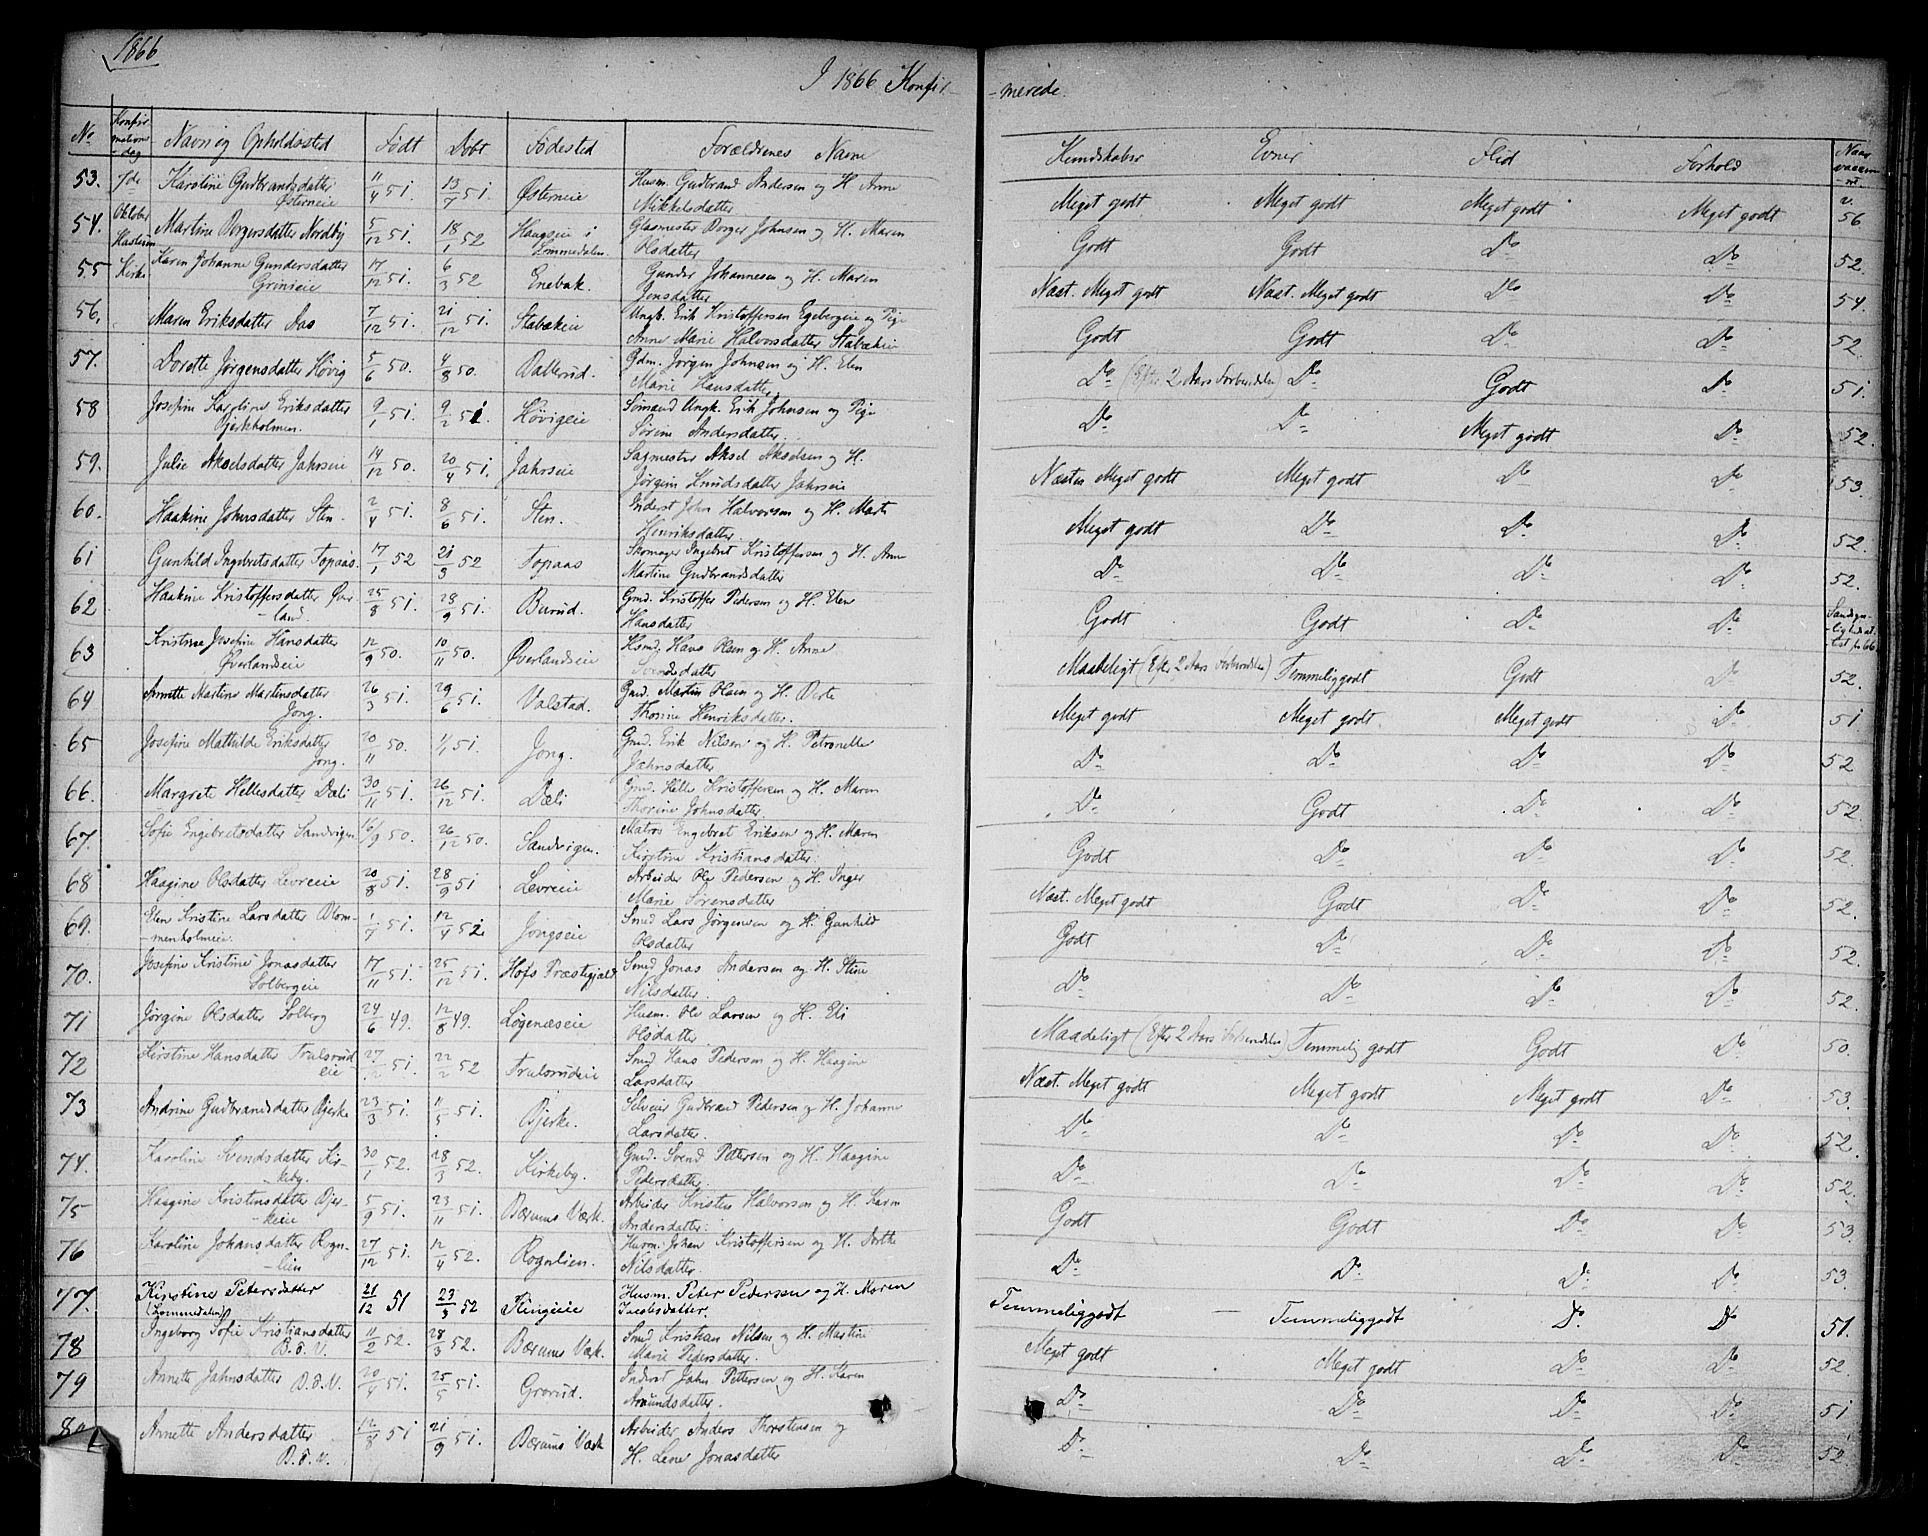 1866
I 1866 Konfir-
-merede.
No Konfirmations-dag Navn og Opholdssted Født Døbt Fødested Forældrenes Navne Kundskaber Evner Flid Forhold Naar vaccineret
53. 7de Karoline Gudbrandsdatter 11/4 51. 13/7 51. Østerneie Husm. Gudbrand Andersen og H. Anne Meget godt Meget godt Meget godt Meget godt 56
Østerneie Mikkelsdatter
54. Oktober Martine Borgersdatter Nordby 5/12 51. 18/1 52 Haugseie i Glasmester Borger Johnsen og H. Maren Godt Godt Do Do 52.
Haslum Lommedalen. Olsdatter
55 Kirke Karen Johanne Gundersdatter 17/12 51. 6/3 52 Enebak. Gunder Johannesen og H. Maren Næst. Meget godt Næst. Meget godt Do Do 54.
Grinieie Jensdatter
56. Maren Eriksdatter Aas 7/12 51. 21/12 51. Stabækeie Ungk. Erik Kristoffersen Egebergeie og Pige Godt Godt Do Do 52.
Anne Marie Halvorsdatter Stabækeie
57. Dorette Jørgensdatter Høvig 5/6 50. 4/8 50. Ballerud. Gdm. Jørgen Johnsen og H. Elen Do (Efter 2 Aars Forberedelse) Do Godt Do 51.
Marie Hansdatter
58 Josefine Karoline Eriksdatter 9/1 51. 9/2 51. Høvigeie Sømand Ungk. Erik Johnsen og Pige Do Do Meget godt Do 52.
Bjerkholmen. Sørine Andersdatter.
59. Julie Akselsdatter Jahrseie 14/12 50. 20/4 51. Jahrseie Sagmester Aksel Akselsen og H. Næsten Meget godt Meget godt Do Do 53.
Jørgine Knudsdatter Jahrseie
60. Haakine Johnsdatter Sten. 2/4 51. 8/6 51. Sten. Inderst John Halvorsen og H. Marte Meget godt Do Do Do 52.
Henriksdatter
61 Gunhild Ingebretsdatter Topaas. 17/1 52 21/3 52 Topaas Skomager Ingebret Kristoffersen og H. Anne Do Do Do Do 52.
Martine Gudbrandsdatter
62 Haakine Kristoffersdatter Øver- 25/8 51. 28/9 51. Burud. Gmd. Kristoffer Pedersen og H. Elen Godt Godt Do Do
-land. Hansdatter
63 Kristine Josefine Hansdatter 12/9 50. 10/11 50. Øverlandseie Husmd. Hans Olsen og H. Anne Maadeligt (Efter 2 Aars Forberedelse) Temmeliggodt Godt Do 52.
Øverlandseie Svendsdatter
64 Annette Martine Martinsdatter 26/3 51. 29/6 51. Valstad. Gmd. Martin Olsen og H. Berte Meget godt Meget godt Meget godt Do 51
Jong. Thorine Henriksdatter.
65 Josefine Mathilde Eriksdatter 20/11 50. 1/1 51. Jong. Gmd. Erik Nilsen og H. Petronelle Do Do Do Do 52
Jong. Jahnsdatter
66. Margrete Hellesdatter Dæli 30/11 51. 26/12 51. Dæli Gmd. Helle Kristoffersen og H. Maren Do Godt Do Do 52.
Thorine Johnsdatter.
67. Sofie Engebretsdatter Sandvigen 16/9 50. 26/12 50. Sandvigen. Matros Engebret Eriksen og H. Maren Godt Do Do Do 52.
Kirstine Kristiansdatter.
68 Haagine Olsdatter Levreeie 20/8 51. 28/9 51 Levreeie Arbeider Ole Pedersen og H. Inger Næst. Meget godt Godt Do Do 52.
Marie Sørensdatter
69. Elen Kristine Larsdatter Blom- 1/7 51. 12/4 52. Jongseie Smed Lars Jørgensen og H. Gunhild Godt Do Do Do 52.
-menholmeie. Olsdatter
70. Josefine Kristine Jonasdatter 17/11 51. 25/12 51. Hofs Præstegjeld Smed Jonas Andersen og H. Stine Do Do Do Do 52.
Solbergeie Nilsdatter.
71 Jørgine Olsdatter Solberg 24/6 49. 12/8 49. Løgenæseie Husm. Ole Larsen og H. Eli Maadeligt (Efter 2 Aars Forberedelse) Temmelig godt Godt Do 50.
Olsdatter.
72 Kirstine Hansdatter Trulsrud- 51. 22/2 52 Trulsrudeie Smed Hans Pedersen og H. Haagine Næst. Meget godt Meget godt Meget godt Do 53.
eie Larsdatter
73 Andrine Gudbrandsdatter Bjerke 23/3 51. 11/5 51. Bjerke. Selveier Gudbrand Pedersen og H. Johanne Do Do Do Do 52.
Larsdatter.
74. Karoline Svendsdatter Kir- 30/1 52. 28/3 52. Kirkeby. Gmd. Svend Pettersen og H. Haagine Do Do Do Do 52.
-keby. Pedersdatter.
75 Haagine Kristensdatter Bjer- 5/9 51. 23/11 51. Bærums Værk. Arbeider Kristen Halvorsen og H. Karen Godt Godt Do Do 53.
-keeie Andersdatter.
76 Karoline Johansdatter Rogn- 27/12 51. 12/4 52. Rognlien. Husm. Johan Kristoffersen og H. Berthe Do Do Do Do 53.
-lien Nilsdatter.
77. Kirstine Petersdatter 21/12 51 23/3 52 Klingieie Husm. Peter Pedersen og H. Maren Temmeliggodt Temmeliggodt Do. Do 51.
(Lommedalen) Jacobsdatter.
78 Ingeborg Sofie Kristiansdatter 11/2 52. 28/3 52. Bærums Værk. Smed Kristian Nilsen og H. Martine Meget godt Meget godt Do Do 52.
B. V. Marie Pedersdatter.
79 Annette Jahnsdatter 20/4 51. 25/5 51. Grorud. Inderst Jahn Pettersen og H. Karen Do Do Do Do 51
B. V. Amundsdatter.
80 Annette Andersdatter 12/8 51 21/9 51. Bærums Værk Arbeider Anders Thorstensen og Do Do Do Do 52
B. V. H. Lene Jonasdatter